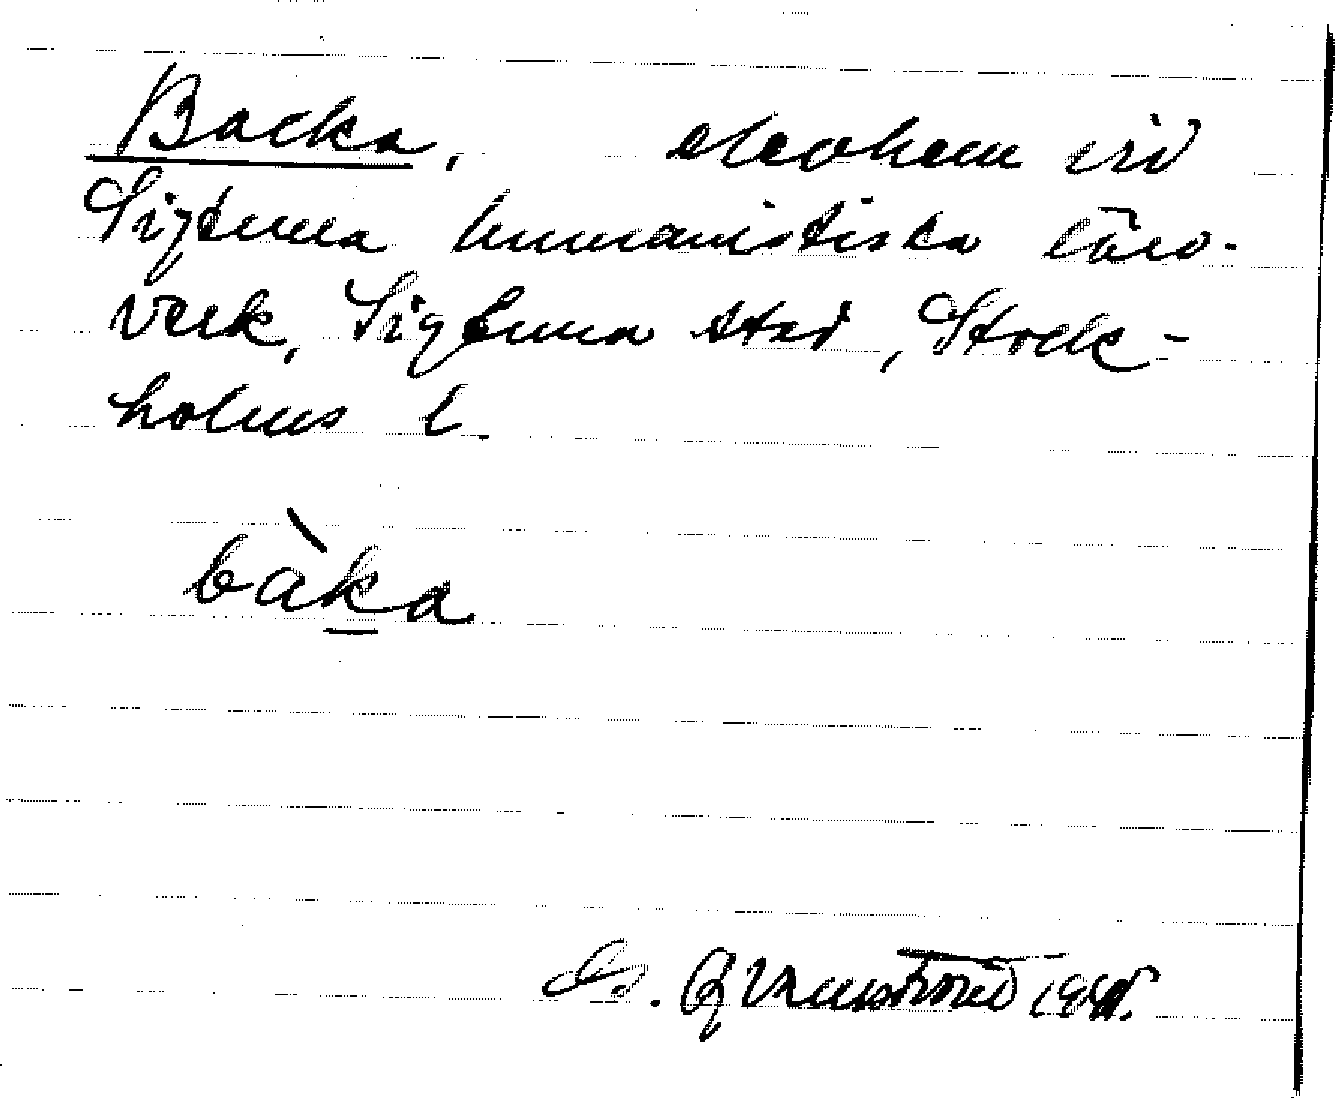 Backa, elevhem vid
Sigtuna humanistiska läro-
verk, Sigtuna stad, Stock-
holms l.
bàka
Qvarnström